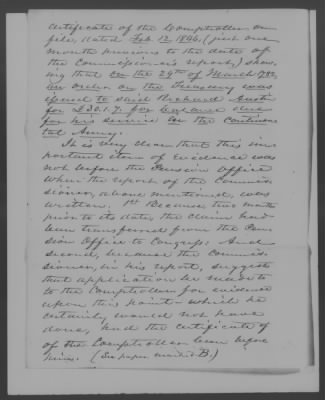 certificate of the Comptroller on
file, dated Feb. 12. 1846, (just one
month previous to the date of
the Commissioner's report,) show-
ing that on the 29th of March 1782,
an order on the Treasury was
issued to said Richard
for £30.1.7. for balance due
for his service in the continen-
tal Army.
It is very clear that this im-
portant item of evidence was
not before the Pension Office
when the report of the Commis-
sioner, above mentioned, was
written. 1st Because two months
prior to its date, the claim had
been transferred from the Pen-
sion Office to Congress: And
second, because the Commis-
sioner, in his report, suggests
that application be made
to the Comptroller for evidence
upon this point - which he
certainly would not have
done, had the certificate of
of the Comptroller been before
him. (See paper marked B.)